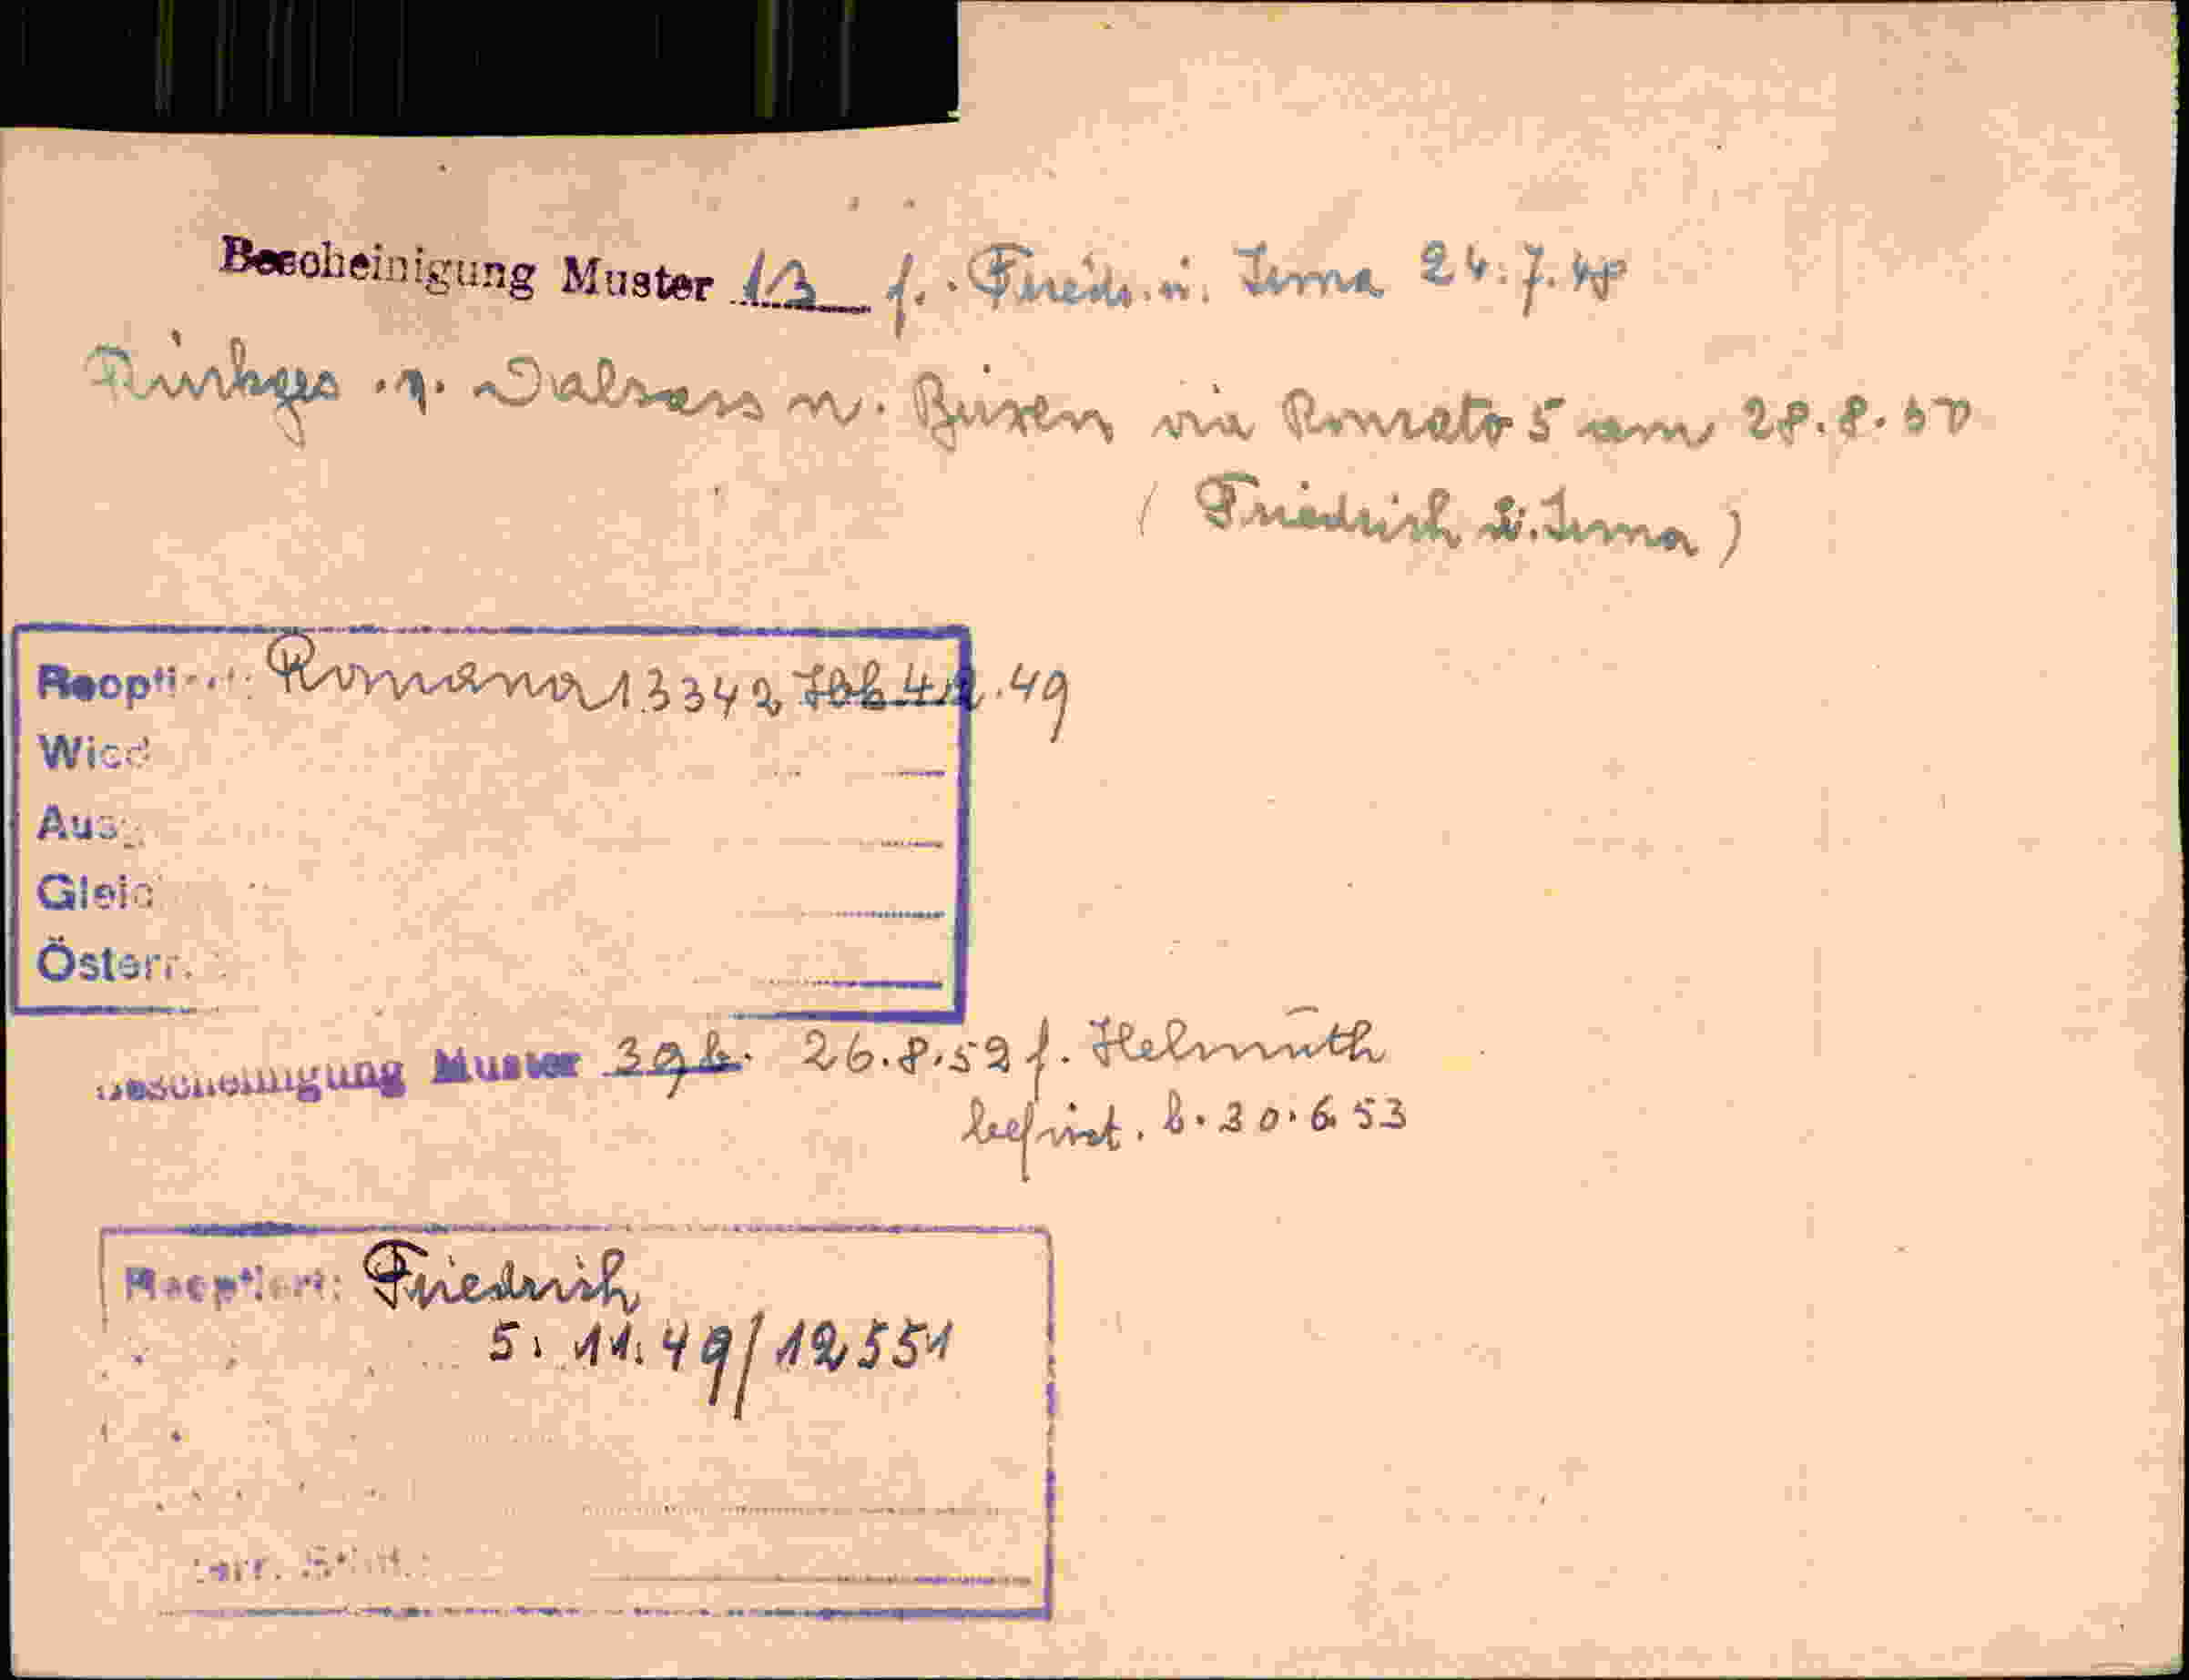 Bescheinigung Muster 13 f. Friedr. u. Irma 24.7.48
Rückges. n. Dalsass n. Brixen via Roncato 5 am 28.8.50
(Friedrich u. Irma)
Reoptiert: Romana 13342 4.2.49
Wied
Ausg.
Gleic
Österr.
Bescheinigung Muster 39b. 26.8.52 f. Helmuth
befrist. b. 30.6.53
Reoptiert: Friedrich
5. 11. 49/12551